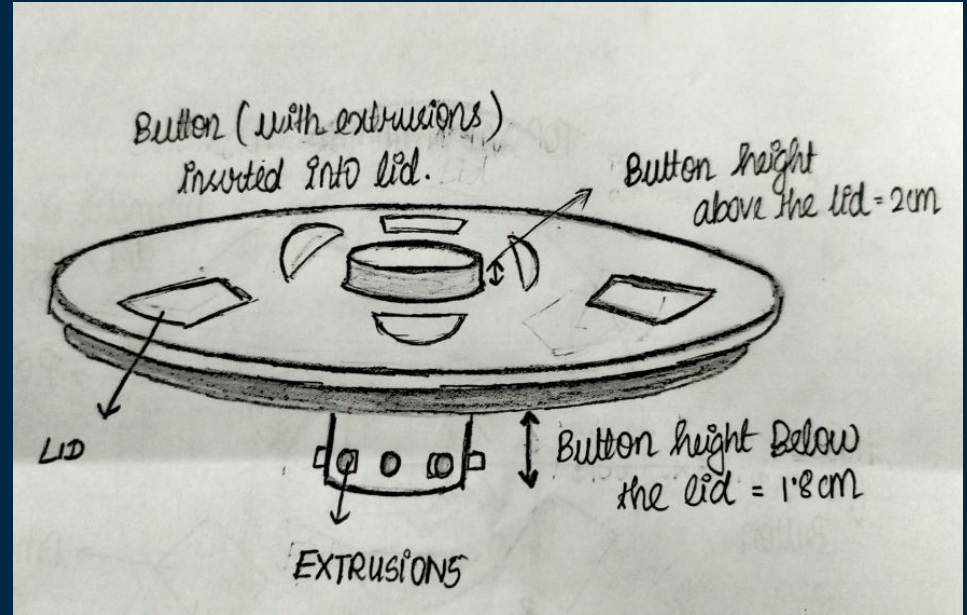 Button (with extrusions)
inserted into lid.
Button height
above the lid = 2cm
LID
Button height Below
the lid = 1.8 cm
EXTRUSIONS